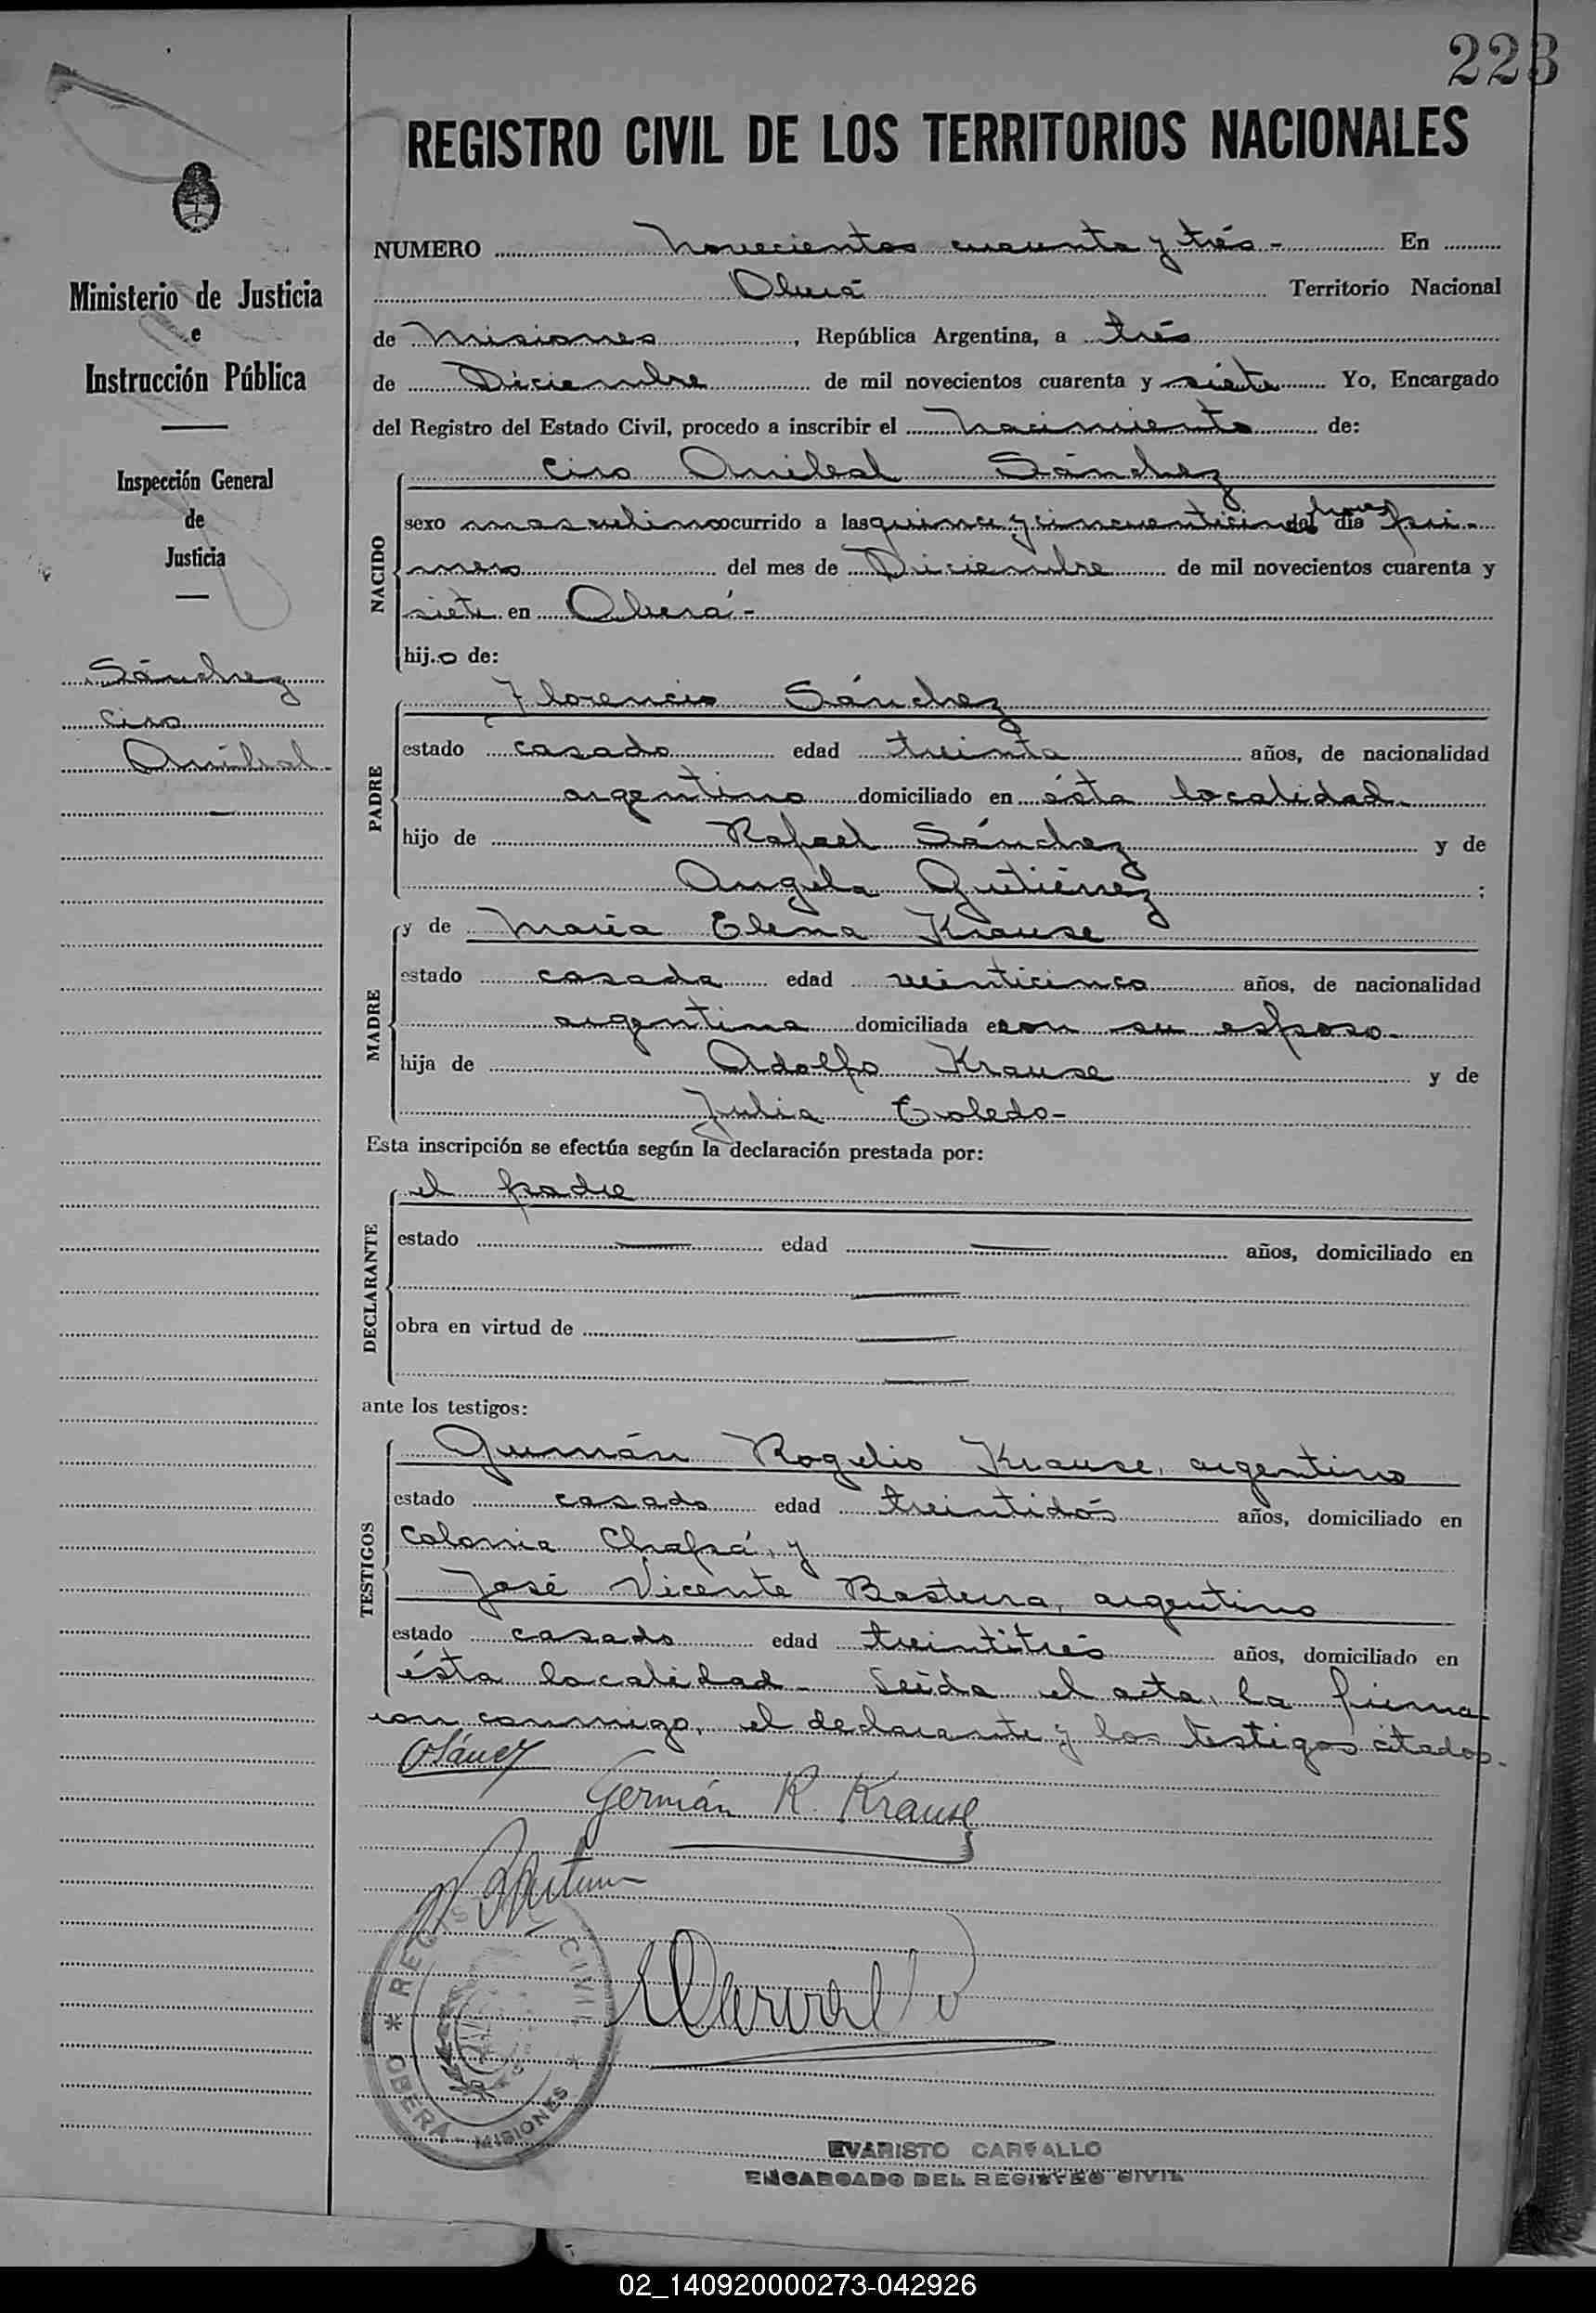 223
REGISTRO CIVIL DE LOS TERRITORIOS NACIONALES
Ministerio de Justicia
e
Instrucción Pública
Inspección General
de
Justicia
Sánchez
Ciro
Anibal
NUMERO novecientos cuarenta y trés - En
Oberá Territorio Nacional
de Misiones, República Argentina, a trés
de Diciembre de mil novecientos cuarenta y siete Yo, Encargado
del Registro del Estado Civil, procedo a inscribir el nacimiento de:
Ciro Anibal Sánchez
NACIDO
sexo masculino ocurrido a las quince y cincuenticinco horas del día pri-
mero del mes de Diciembre de mil novecientos cuarenta y
siete en Oberá -
hijo de:
PADRE
Florencio Sánchez
estado casado edad treinta años, de nacionalidad
argentino domiciliado en ésta localidad
hijo de Rafael Sánchez y de
Angela Gutiérrez ;
MADRE
y de María Elena Krause
estado casada edad veinticinco años, de nacionalidad
argentina domiciliada con su esposo
hija de Adolfo Krause y de
Julia Toledo -
Esta inscripción se efectúa según la declaración prestada por:
DECLARANTE
el padre
estado — edad — años, domiciliado en
—
obra en virtud de —
—
ante los testigos:
TESTIGOS
Germán Rogelio Krause, argentino
estado casado edad treintidós años, domiciliado en
Colonia Chapá, y
José Vicente Basterra, argentino
estado casado edad treintitrés años, domiciliado en
ésta localidad - Leída el acta, la firma-
ron conmigo, el declarante y los testigos citados.
Germán R. Krause
REGISTRO CIVIL
OBERÁ - MISIONES
EVARISTO CARVALLO
ENCARGADO DEL REGISTRO CIVIL
02_140920000273-042926